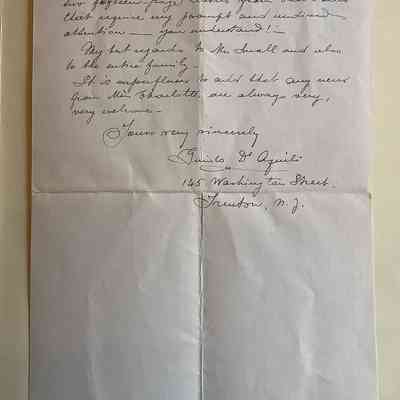 two fifteen page letters
that require my prompt and undivided
attention — you understand! —
My best regards to Mr. Small and also
to the entire family —
It is superfluous to add that any news
from Miss Charlotte are always very,
very welcome —
Yours very sincerely
Guido D' Aquila
145 Washington Street.
Trenton, N. J.